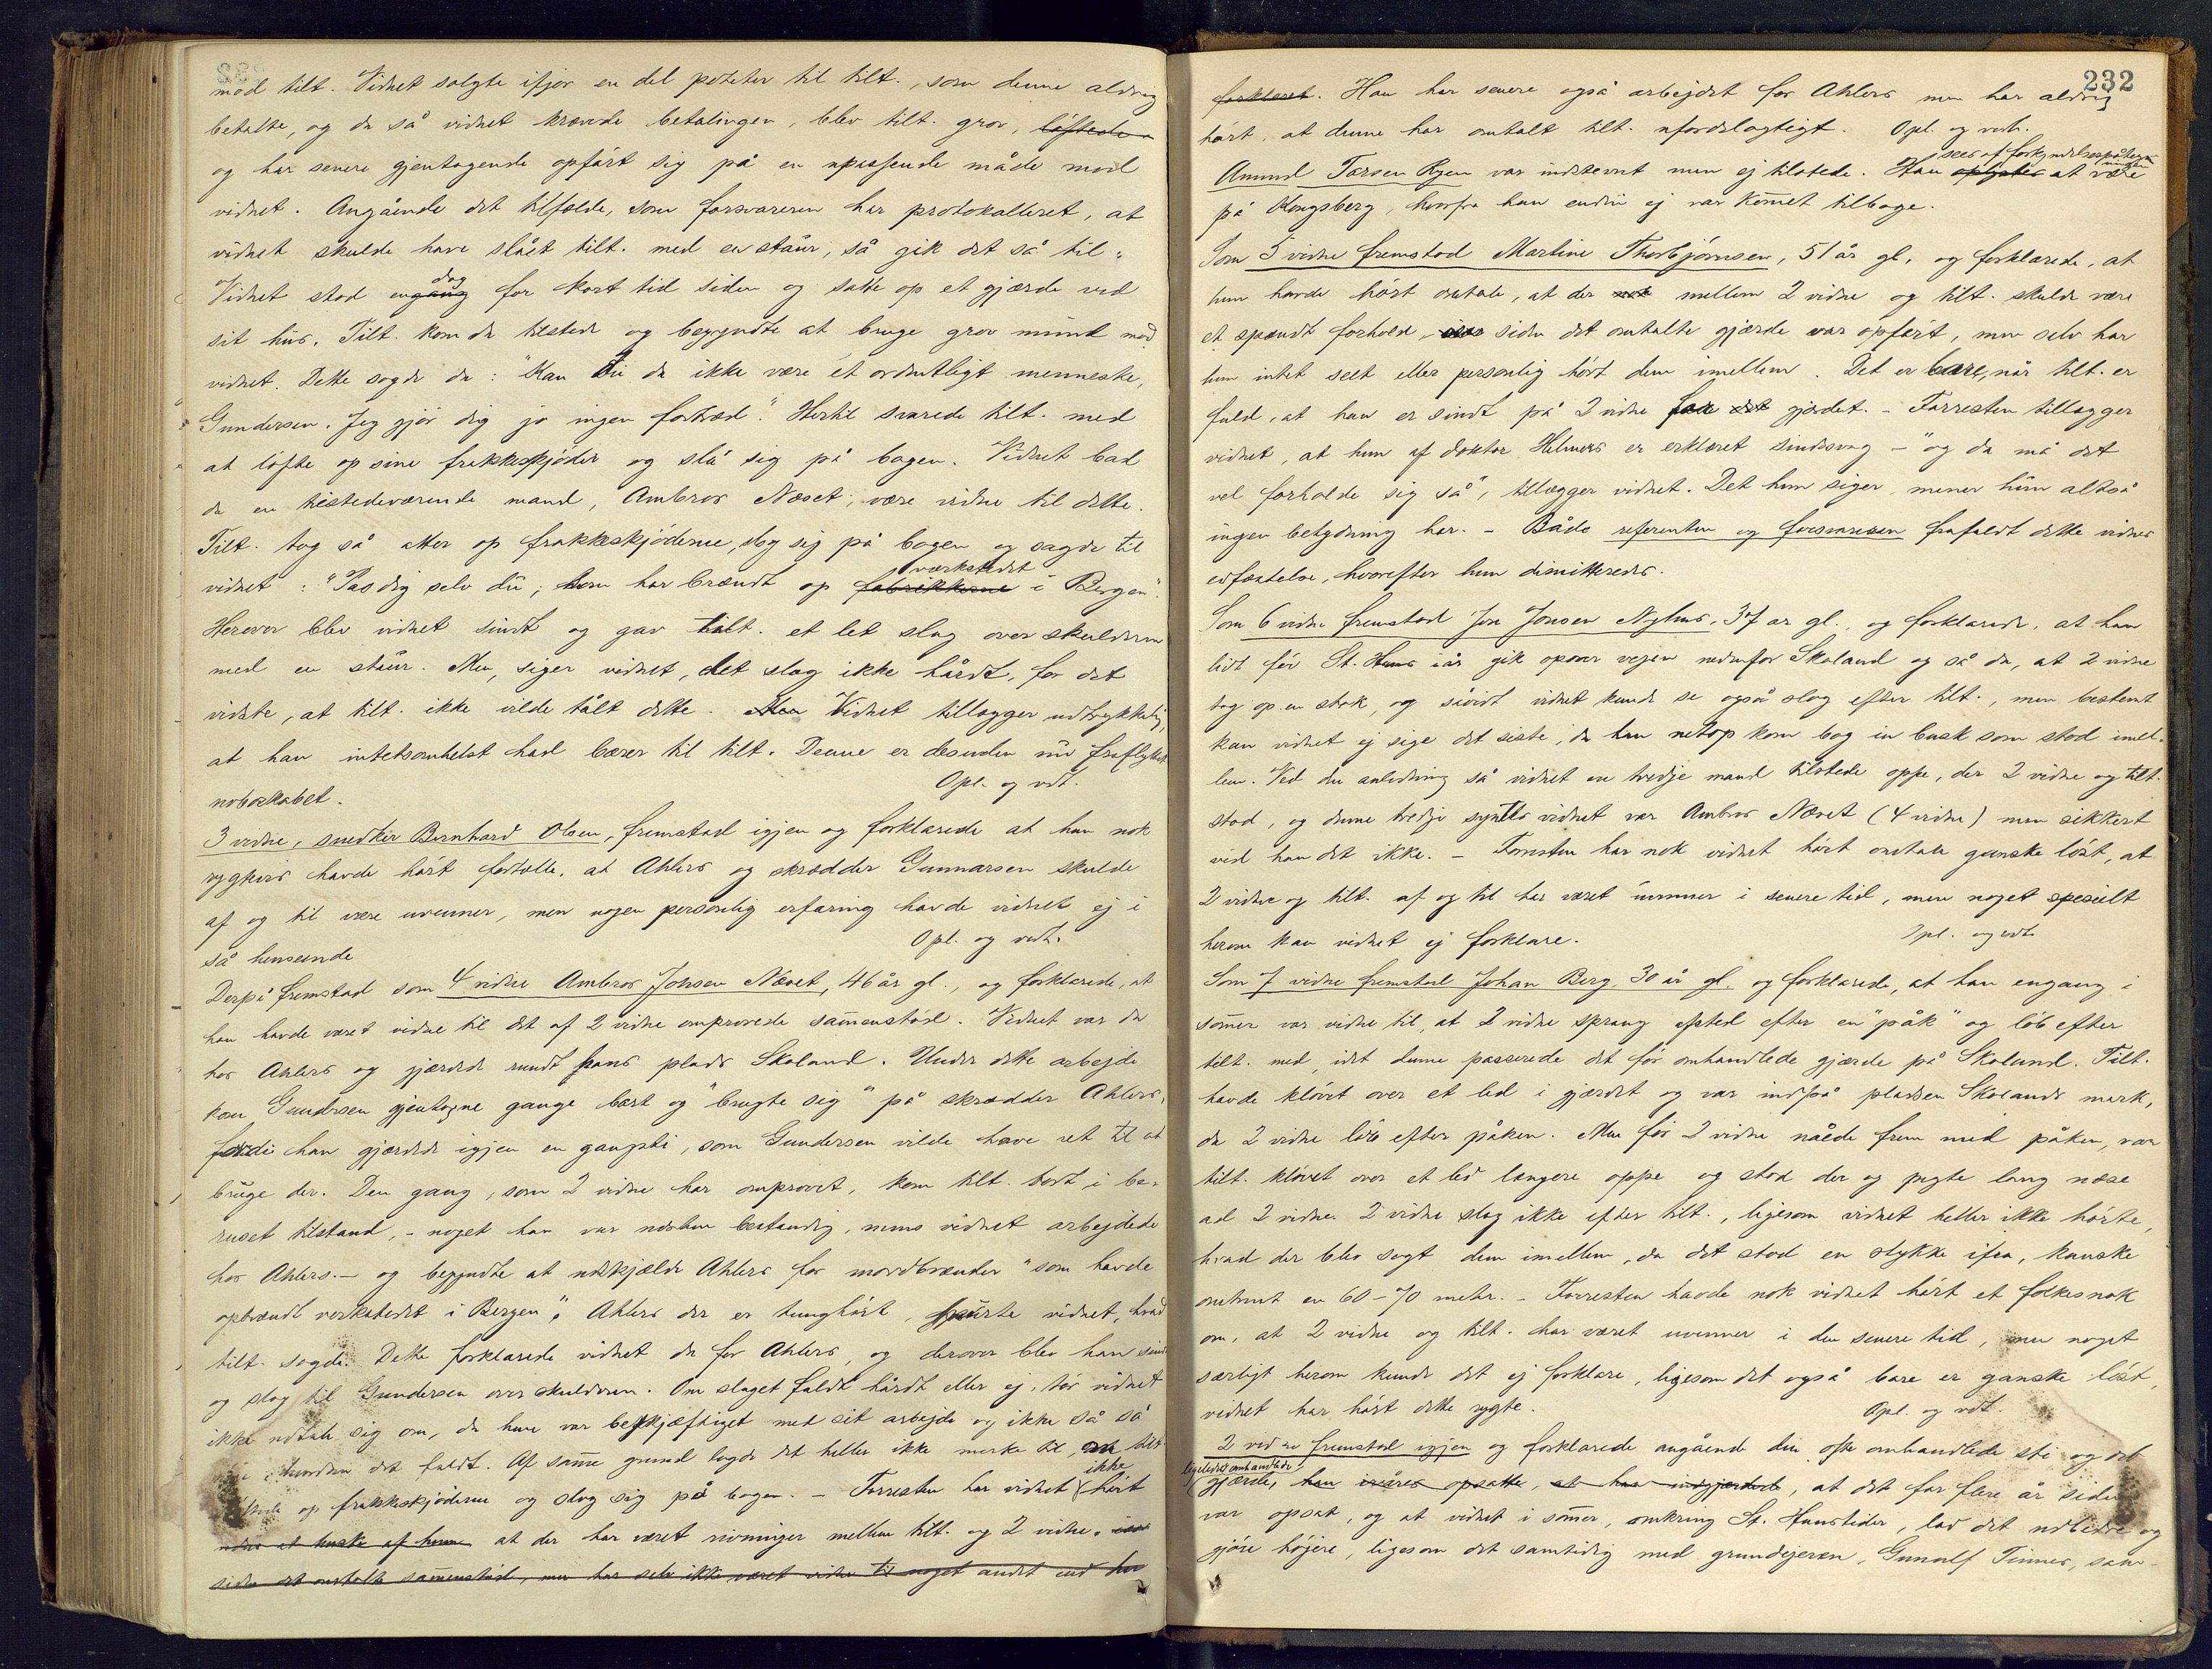 mod tilt. Vidnet solgte ifjor en del poteter til tilt., som denne aldrig
betalte, og da så vidnet krævede betalingen, blev tilt. grov, löftede
og har senere gjentagende opført sig på en upassende måde mod
vidnet. Angående det tilfælde, som forsvareren har protokolleret, at
vidnet skulde have slået tilt. med en staur, så gik det så til:
Vidnet stod en gang dag for kort tid siden og satte op et gjærde ved
sit hus. Tilt. kom da tilstede og begyndte at bruge grov mund mod
vidnet. Dette sagde da: "Kan Du da ikke være et ordentligt menneske,
Gundersen. Jeg gjør dig jo ingen fortræd." Hertil svarede tilt. med
at løfte op sine frakkeskjøder og slå sig på bagen. Vidnet bad
da en tilstedeværende mand, Ambros Næset, være vidne til dette.
Tilt. tog så atter op frakkeskjøderne, slog sig på bagen og sagde til
vidnet: "Pas dig selv du, som har brændt op fabrikkerne værkstedet i Bergen".
Herover blev vidnet sindt og gav tilt. et let slag over skulderen
med en staur. Men, siger vidnet, det slog ikke hårdt, for det
vidste, at tilt. ikke vilde tålt dette. Vidnet tillægger udtrykkelig,
at han intetsomhelst had bærer til tilt. Denne er desuden nu fraflyttet
naboskabet. Opl. og vdt.
3 vidne, snedker Bernhard Olsen, fremstod igjen og forklarede at han nok
rygtevis havde hørt fortælle, at Ahlers og skrædder Gunnarsen skulde
af og til være uvenner, men nogen personlig erfaring havde vidnet ej i
så henseende Opl. og vedt.
Derpå fremstod som 4 vidne Ambros Johsen Næset, 46 år gl., og forklarede, at
han havde været vidne til det af 2 vidne omprovede sammenstød. Vidnet var da
hos Ahlers og gjærdede rundt hans plads Skoland. Under dette arbejde
kom Gundersen gjentagne gange bort og "brugte sig" på skrædder Ahlers,
fordi han gjærdede igjen en gangsti, som Gundersen vilde have ret til at
bruge der. Den gang, som 2 vidne har omprovet, kom tilt. bort i be-
ruset tilstand, - noget han var næsten bestandig, mens vidnet arbejdede
hos Ahlers - og begyndte at udskjælde Ahlers for mordbrænder "som havde
opbrændt verkstedet i Bergen". Ahlers der er tunghørt, spurte vidnet, hvad
tilt. sagde. Dette forklarede vidnet da for Ahlers, og derover blev han sindt
og slog til Gundersen over skulderen. Om slaget faldt hårdt eller ej, tør vidnet
ikke udtale sig om, da han var beskjæftiget med sit arbejde og ikke så så
hvordan det faldt. Af samme grund lagde det heller ikke merke til, om tilt.
op frakkeskjøderne og slog sig på bagen. - Forresten har vidnet ikke hørt
at der har været rivninger mellem tilt. og 2 vidne.
siden det omtalte sammenstød, men har selv ikke været vidne til noget andet end
232
forklaret. Han har senere også arbejdet for Ahlers men har aldrig
hørt, at denne har omtalt tilt. ufordelagtigt. Opl. og vedt.
sees af forkyndelsespåtegningen
Amund Tarsen Ryen var indstevnt men ej tilstede. Han oplystes at være
på Kongsberg, hvorfra han endnu ej var kommet tilbage.
Som 5 vidne fremstod Martine Thorbjørnsen, 51 år gl. og forklarede, at
hun havde hørt omtale, at der mellem 2 vidne og tilt. skulde være
et spændt forhold, siden det omtalte gjærde var opført, men selv har
hun intet seet eller personlig hørt dem imellem. Det er bare, når tilt. er
fuld, at han er sindt på 2 vidne for det gjærdet. - Forresten tillægger
vidnet, at hun af doktor Helmers er erklæret sindssvag - "og da må det
vel forholde sig så", tillægger vidnet. Det hun siger, mener hun altså
ingen betydning har. - Både referenten og forsvareren frafaldt dette vidnes
edfæstelse, hvorefter hun dimitteredes.
Som 6 vidne fremstod Jon Jonsen Nyhus, 37 år gl., og forklarede, at han
lidt før St. Hans iår gik opover vejen nedenfor Skoland og så da, at 2 vidne
tog op en stok, og såvidt vidnet kunde se også slog efter tilt., men bestemt
kan vidnet ej sige det siste, da han netop kom bag en busk som stod imel-
lem. Ved den anledning så vidnet en tredje mand tilstede oppe, der 2 vidne og tilt.
stod, og denne tredje syntes vidnet var Ambros Næset (4 vidne) men sikkert
ved han det ikke. - Forresten har nok vidnet hørt omtale ganske løst, at
2 vidne og tilt. af og til har været uvenner i senere tid, men noget spesielt
herom kan vidnet ej forklare. Opl. og vdt.
Som 7 vidne fremstod Johan Berg, 30 år gl. og forklarede, at han engang i
sommer var vidne til, at 2 vidne sprang afsted efter en "påk" og løb efter
tilt. med, idet denne passerede det før omhandlede gjærde på Skoland. Tilt.
havde kløvet over et led i gjærdet og var indpå pladsen Skolands mark,
da 2 vidne løb efter påken. Men før 2 vidne nåede frem med påken, var
tilt. kløvet over et led længere oppe og stod der og pegte lang næse
ad 2 vidne. 2 vidne slog ikke efter tilt., ligesom vidnet heller ikke hørte,
hvad der blev sagt dem imellem, da det stod en stykke ifra, kanske
omtrent en 60-70 meter. - Forresten havde nok vidnet hørt et folkesnak
om, at 2 vidne og tilt. har været uvenner i den senere tid, men noget
særligt herom kunde det ej forklare, ligesom det også bare er ganske løst,
vidnet har hørt dette rygte. Opl. og vdt.
2 vidne fremstod igjen og forklarede angående den ofte omhandlede sti og det
ligeledes omhandlede gjærde, han ivåres opsatte, at han indgjærdede, at det for flere år siden
var opsat, og at vidnet i sommer, omkring St. Hanstider, lod det udbedre og
gjøre højere, ligesom det samtidig med grundejeren, Gunulf Tinnes, sam-